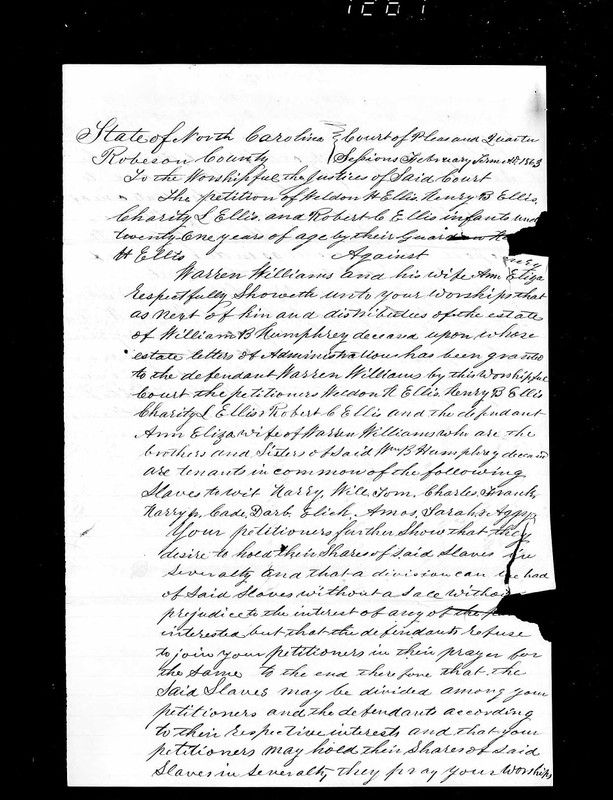 State of North Carolina } Court of Pleas and Quarter
Robeson County } Sessions February Term AD. 1863
To the Worshipful the Justices of Said Court
The petition of Weldon H Ellis. Henry B Ellis.
Charity L Ellis. and Robert C Ellis infants und
twenty One years of age by their Guardian
H Ellis Against
Warren Williams and his wife Ann Eliza
Respectfully Showeth unto your Worships that
as next of kin and distributies of the estate
of William B Humphrey decasd upon whose
estate letters of Administration has been granted
to the defendant Warren Williams by this Worshipful
Court the petitioners Weldon H Ellis. Henry B Ellis
Charity L Ellis & Robert C Ellis and the defendant
Ann Eliza wife of Warren Williams who are the
brothers and Sisters of said Wm B Humphrey decasd
are tenants in common of the following
Slaves to wit Harry, Will, Tom, Charles, Frank,
Harry jr, Cade, Darb, Amos, Sarah &
Your petitioners further Show that they
desire to hold their Shares of said Slaves in
Severalty and that a division can be had
of Said Slaves without a Sale without
prejudice to the interest of any of the
interested but that the defendants refuse
to join your petitioners in their prayer for
the same to the end therefore that the
Said Slaves may be divided among your
petitioners and the defendants according
to their respective interests and that your
petitioners may hold their Shares of Said
Slaves in Severalty, they pray your Worships